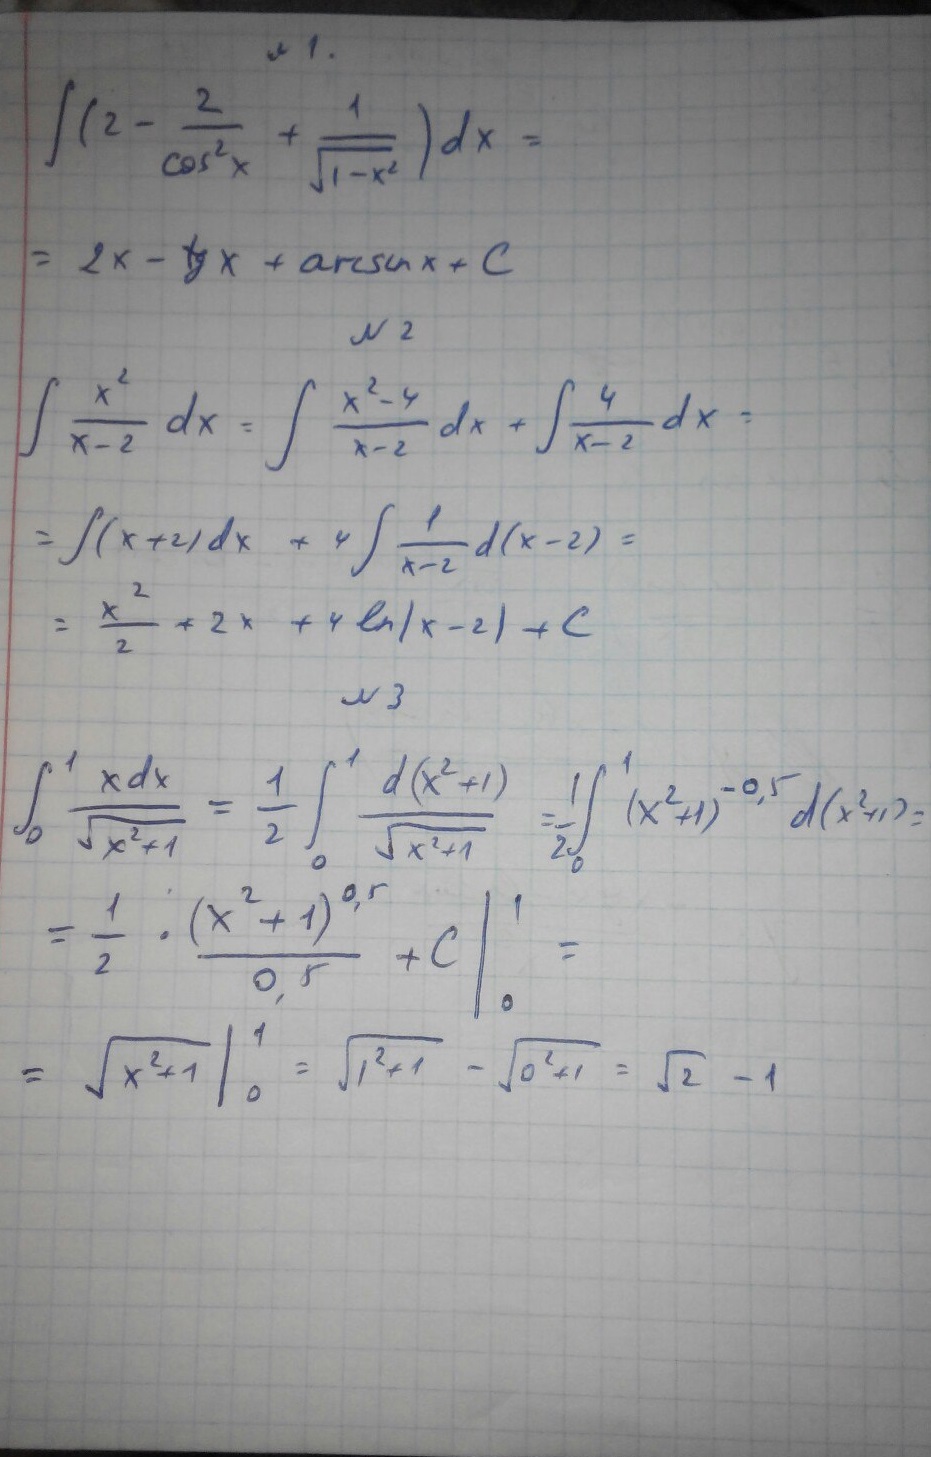 № 1.
∫(2 - 2/cos²x + 1/√(1-x²))dx =
= 2x - tg x + arcsin x + C
№ 2
∫ x²/(x-2) dx = ∫ (x²-4)/(x-2) dx + ∫ 4/(x-2) dx =
= ∫(x+2)dx + 4∫ 1/(x-2) d(x-2) =
= x²/2 + 2x + 4 ln|x-2| + C
№ 3
∫₀¹ xdx/√(x²+1) = 1/2 ∫₀¹ d(x²+1)/√(x²+1) = 1/2 ∫₀¹ (x²+1)^(-0,5) d(x²+1) =
= 1/2 · (x²+1)^(0,5)/0,5 + C |₀¹ =
= √(x²+1) |₀¹ = √(1²+1) - √(0²+1) = √2 - 1